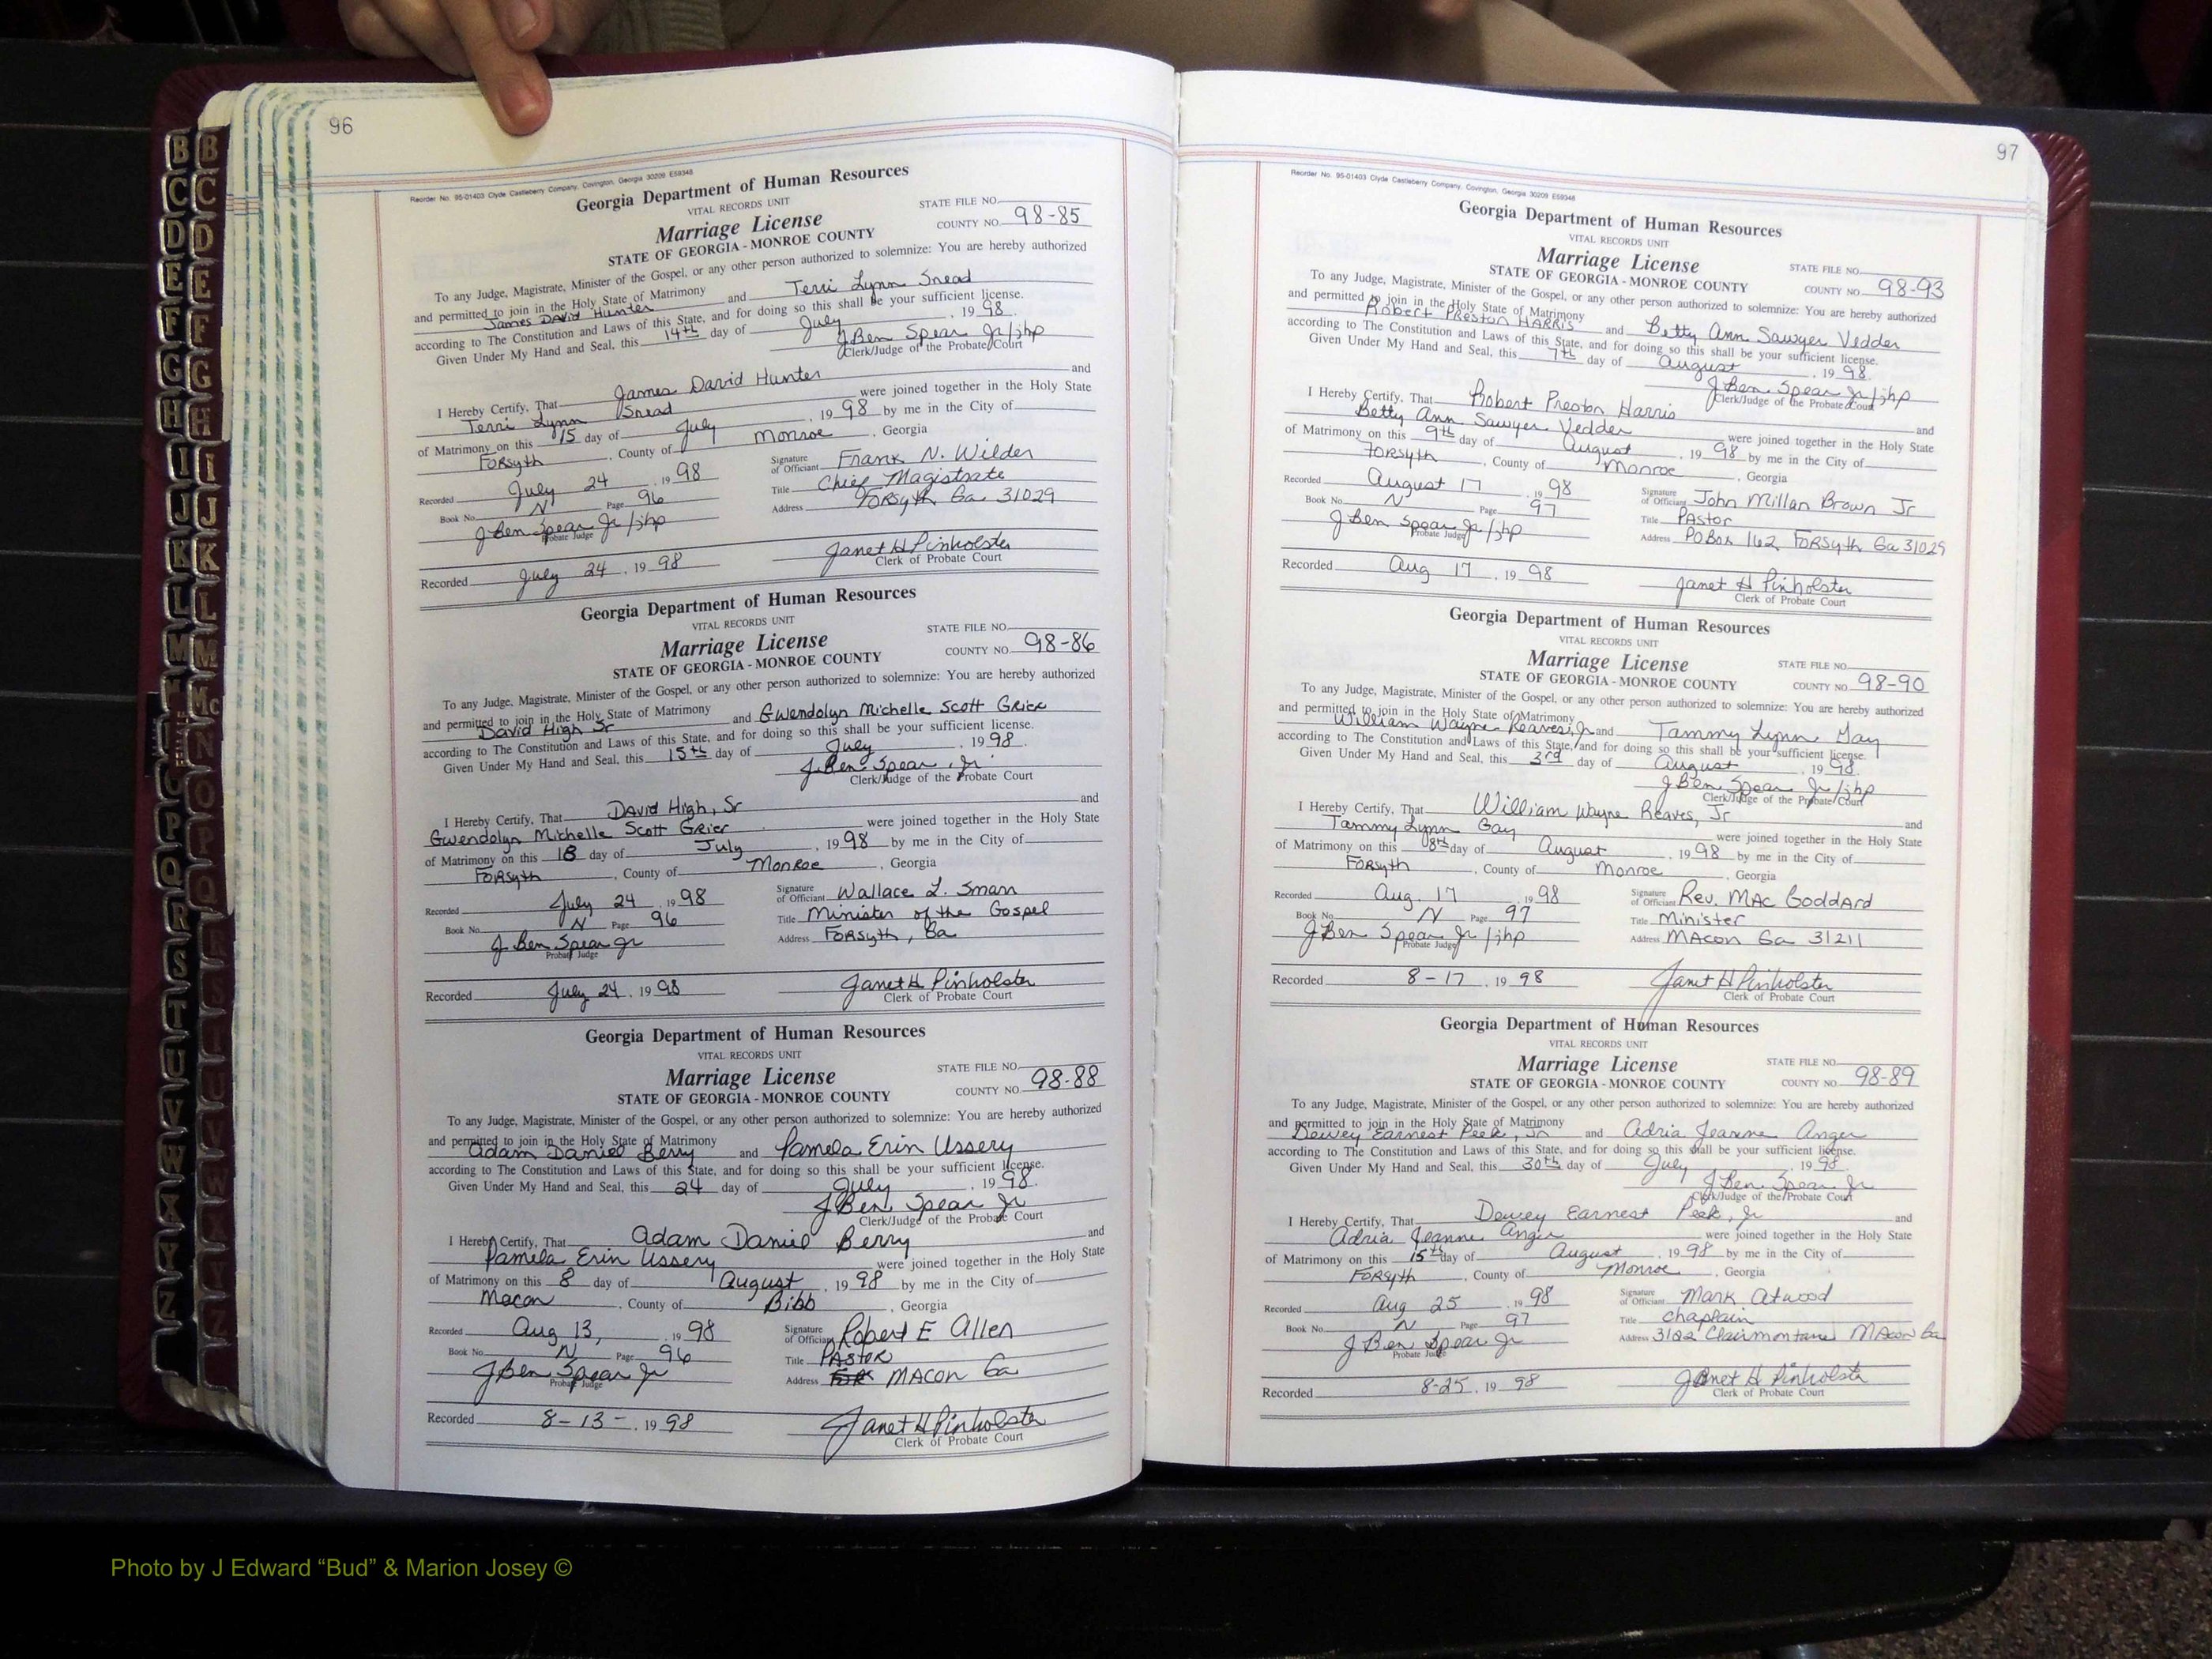 96
Reorder No. 95-01403 Clyde Castleberry Company, Covington, Georgia 30209 E59348
Georgia Department of Human Resources
VITAL RECORDS UNIT
STATE FILE NO.
Marriage License
COUNTY NO. 98-85
STATE OF GEORGIA - MONROE COUNTY
To any Judge, Magistrate, Minister of the Gospel, or any other person authorized to solemnize: You are hereby authorized
and permitted to join in the Holy State of Matrimony
James David Hunter and Terri Lynn Snead
according to The Constitution and Laws of this State, and for doing so this shall be your sufficient license.
Given Under My Hand and Seal, this 14th day of July, 1998.
J Ben Spear Jr/jhp
Clerk/Judge of the Probate Court
I Hereby Certify, That James David Hunter and
Terri Lynn Snead were joined together in the Holy State
of Matrimony on this 15 day of July, 1998 by me in the City of
Forsyth, County of Monroe, Georgia
Recorded July 24, 1998
Book No. N Page 96
J Ben Spear Jr/jhp
Probate Judge
Signature of Officiant Frank N. Wilder
Title Chief Magistrate
Address Forsyth Ga 31029
Recorded July 24, 1998
Janet H Pinholster
Clerk of Probate Court
Georgia Department of Human Resources
VITAL RECORDS UNIT
STATE FILE NO.
Marriage License
COUNTY NO. 98-86
STATE OF GEORGIA - MONROE COUNTY
To any Judge, Magistrate, Minister of the Gospel, or any other person authorized to solemnize: You are hereby authorized
and permitted to join in the Holy State of Matrimony
David High Sr and Gwendolyn Michelle Scott Grier
according to The Constitution and Laws of this State, and for doing so this shall be your sufficient license.
Given Under My Hand and Seal, this 15th day of July, 1998.
J. Ben Spear, Jr.
Clerk/Judge of the Probate Court
I Hereby Certify, That David High, Sr and
Gwendolyn Michelle Scott Grier were joined together in the Holy State
of Matrimony on this 18 day of July, 1998 by me in the City of
Forsyth, County of Monroe, Georgia
Recorded July 24, 1998
Book No. N Page 96
J. Ben Spear Jr
Probate Judge
Signature of Officiant Wallace L. Smarr
Title Minister of the Gospel
Address Forsyth, Ga
Recorded July 24, 1998
Janet H Pinholster
Clerk of Probate Court
Georgia Department of Human Resources
VITAL RECORDS UNIT
STATE FILE NO.
Marriage License
COUNTY NO. 98-88
STATE OF GEORGIA - MONROE COUNTY
To any Judge, Magistrate, Minister of the Gospel, or any other person authorized to solemnize: You are hereby authorized
and permitted to join in the Holy State of Matrimony
Adam Daniel Berry and Pamela Erin Ussery
according to The Constitution and Laws of this State, and for doing so this shall be your sufficient license.
Given Under My Hand and Seal, this 24 day of July, 1998.
J Ben Spear Jr
Clerk/Judge of the Probate Court
I Hereby Certify, That Adam Daniel Berry and
Pamela Erin Ussery were joined together in the Holy State
of Matrimony on this 8 day of August, 1998 by me in the City of
Macon, County of Bibb, Georgia
Recorded Aug 13, 1998
Book No. N Page 96
J Ben Spear Jr
Probate Judge
Signature of Officiant Robert E Allen
Title Pastor
Address Macon Ga
Recorded 8-13-, 1998
Janet H Pinholster
Clerk of Probate Court
97
Reorder No. 95-01403 Clyde Castleberry Company, Covington, Georgia 30209 E59348
Georgia Department of Human Resources
VITAL RECORDS UNIT
Marriage License
STATE FILE NO.
STATE OF GEORGIA - MONROE COUNTY
COUNTY NO. 98-93
To any Judge, Magistrate, Minister of the Gospel, or any other person authorized to solemnize: You are hereby authorized
and permitted to join in the Holy State of Matrimony
Robert Preston HARRIS and Betty Ann Sawyer Vedder
according to The Constitution and Laws of this State, and for doing so this shall be your sufficient license.
Given Under My Hand and Seal, this 7th day of August, 1998.
J Ben Spear Jr/jhp
Clerk/Judge of the Probate Court
I Hereby Certify, That Robert Preston Harris and
Betty Ann Sawyer Vedder were joined together in the Holy State
of Matrimony on this 9th day of August, 1998 by me in the City of
Forsyth, County of Monroe, Georgia
Recorded August 17, 1998
Book No. N Page 97
J Ben Spear Jr/jhp
Probate Judge
Signature of Officiant John Millan Brown Jr
Title Pastor
Address PO Box 162 Forsyth Ga 31029
Recorded Aug 17, 1998
Janet H Pinholster
Clerk of Probate Court
Georgia Department of Human Resources
VITAL RECORDS UNIT
Marriage License
STATE FILE NO.
STATE OF GEORGIA - MONROE COUNTY
COUNTY NO. 98-90
To any Judge, Magistrate, Minister of the Gospel, or any other person authorized to solemnize: You are hereby authorized
and permitted to join in the Holy State of Matrimony
William Wayne Reaves, Jr and Tammy Lynn Gay
according to The Constitution and Laws of this State, and for doing so this shall be your sufficient license.
Given Under My Hand and Seal, this 3rd day of August, 1998.
J Ben Spear Jr/jhp
Clerk/Judge of the Probate Court
I Hereby Certify, That William Wayne Reaves, Jr and
Tammy Lynn Gay were joined together in the Holy State
of Matrimony on this 8th day of August, 1998 by me in the City of
Forsyth, County of Monroe, Georgia
Recorded Aug. 17, 1998
Book No. N Page 97
J Ben Spear Jr/jhp
Probate Judge
Signature of Officiant Rev. Mac Goddard
Title Minister
Address Macon Ga 31211
Recorded 8-17, 1998
Janet H Pinholster
Clerk of Probate Court
Georgia Department of Human Resources
VITAL RECORDS UNIT
Marriage License
STATE FILE NO.
STATE OF GEORGIA - MONROE COUNTY
COUNTY NO. 98-89
To any Judge, Magistrate, Minister of the Gospel, or any other person authorized to solemnize: You are hereby authorized
and permitted to join in the Holy State of Matrimony
Dewey Earnest Peek, Jr and Adria Jeanne Anger
according to The Constitution and Laws of this State, and for doing so this shall be your sufficient license.
Given Under My Hand and Seal, this 30th day of July, 1998.
J Ben Spear Jr
Clerk/Judge of the Probate Court
I Hereby Certify, That Dewey Earnest Peek, Jr and
Adria Jeanne Anger were joined together in the Holy State
of Matrimony on this 15th day of August, 1998 by me in the City of
Forsyth, County of Monroe, Georgia
Recorded Aug 25, 1998
Book No. N Page 97
J Ben Spear Jr
Probate Judge
Signature of Officiant Mark Atwood
Title Chaplain
Address 3122 Clairmontane Macon Ga
Recorded 8-25, 1998
Janet H Pinholster
Clerk of Probate Court
B B
C C
D D
E E
F F
G G
H H
I I
J J
K K
L L
M M
Mc
N
O
P P
Q Q
R R
S S
T T
U U
V V
W W
X X
Y Y
Z Z
Photo by J Edward “Bud” & Marion Josey ©